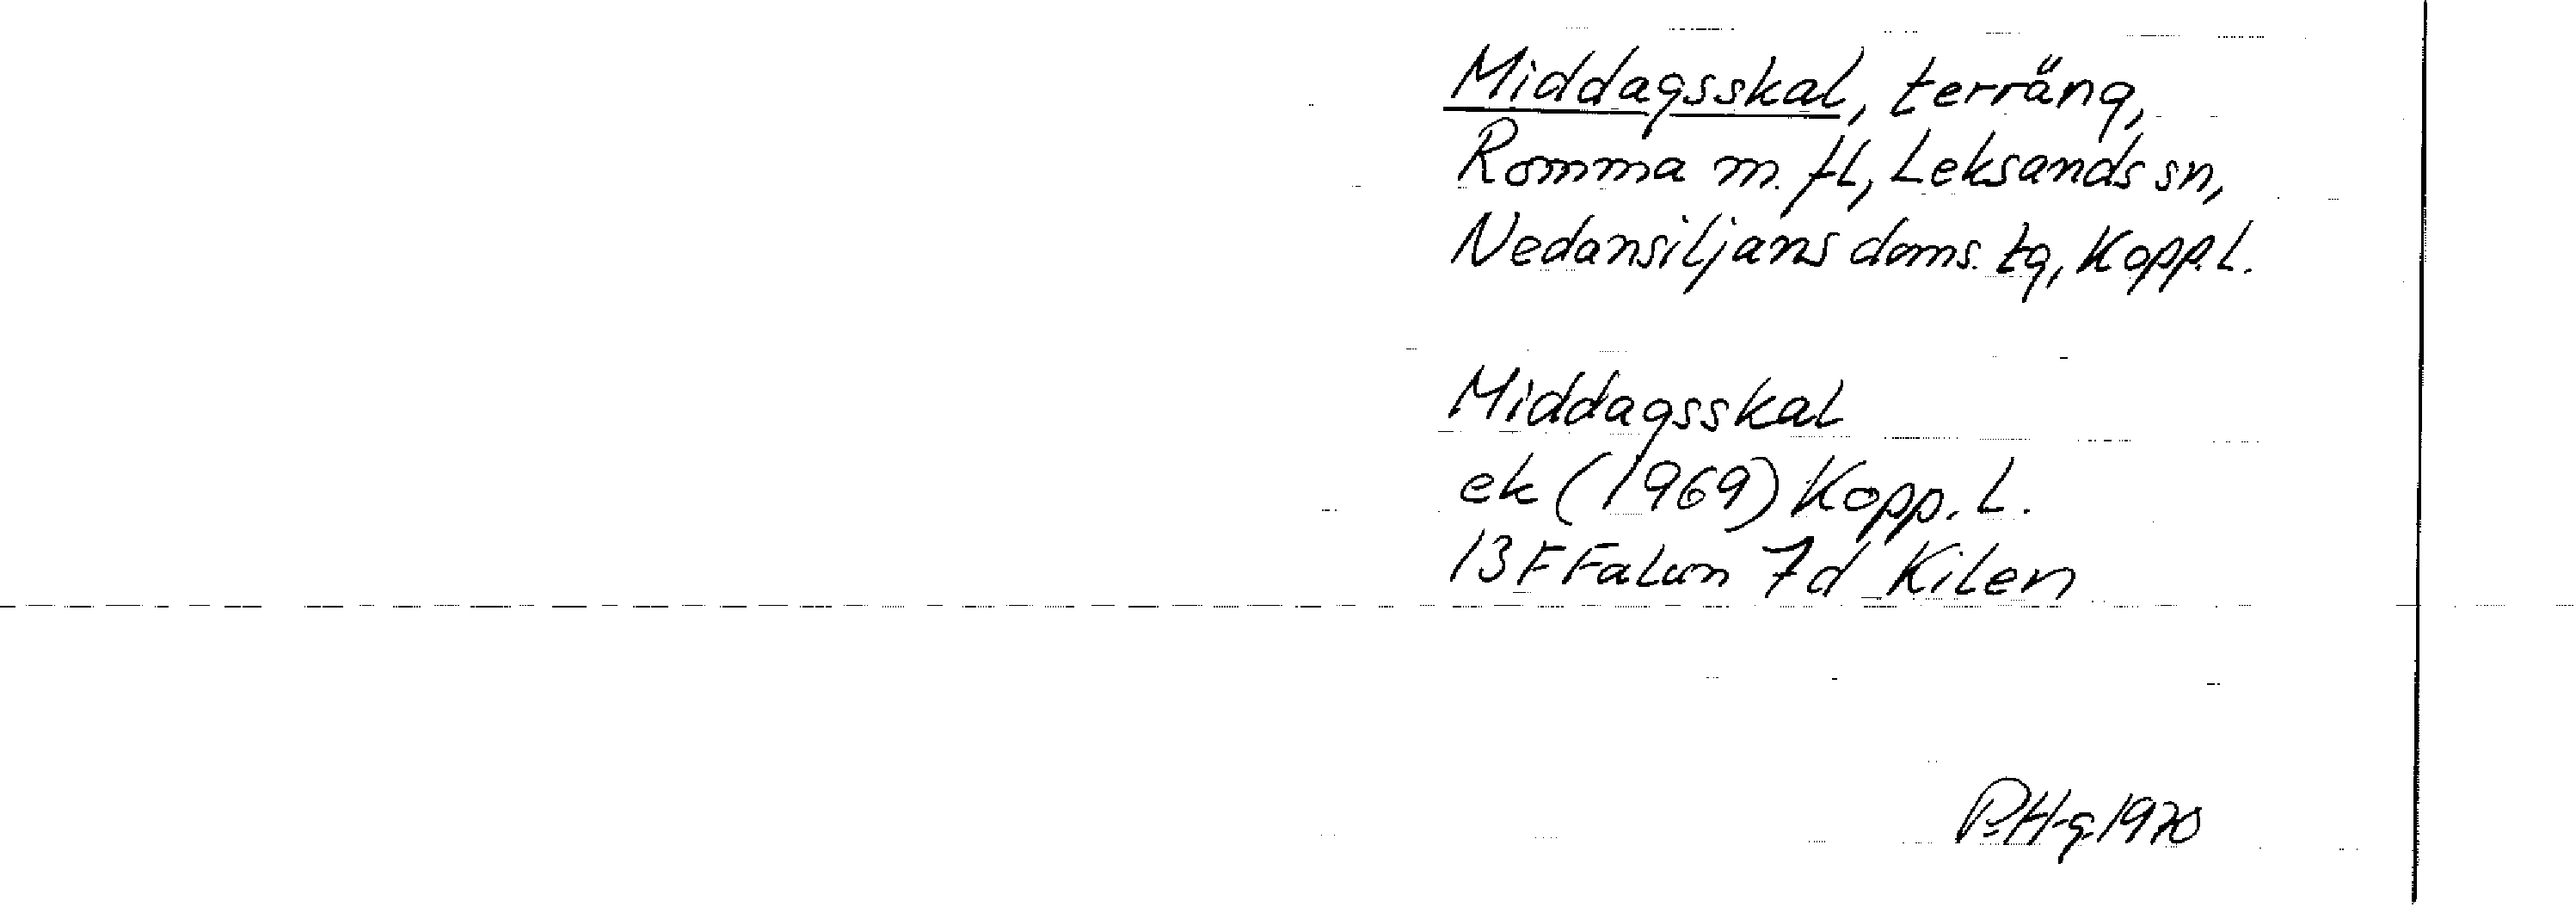 Middagsskal, terräng,
Romma m. fl, Leksands sn,
Nedansiljans doms. tg, Kopp. L.
Middagsskal
ek (1969) Kopp. L.
13F Falun 7d Kilen
P.H-g 1970